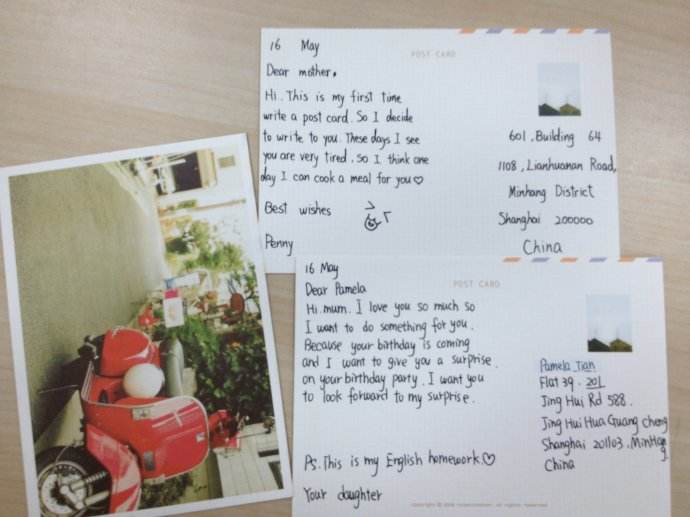 POST CARD
16 May
Dear mother,
Hi. This is my first time
write a post card. So I decide
to write to you. These days I see
you are very tired, so I think one
day I can cook a meal for you♡
Best wishes
Penny
601, Building 64
1108, Lianhuanan Road,
Minhang District
Shanghai 200000
China
POST CARD
16 May
Dear Pamela
Hi mum. I love you so much so
I want to do something for you.
Because your birthday is coming
and I want to give you a surprise.
on your birthday party. I want you
to look forward to my surprise.
Ps. This is my English homework♡
Your daughter
Pamela Tian
Flat 39. 201
Jing Hui Rd 588.
Jing Hui Hua Guang cheng
Shanghai 201103. MinHang
China